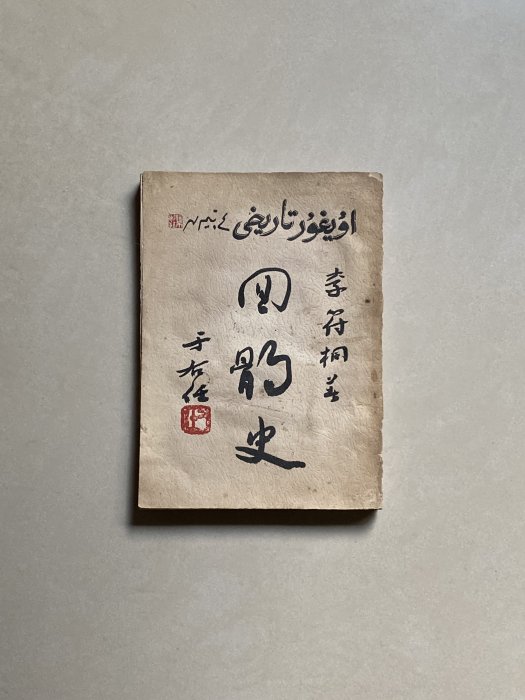 اۇيغۇر تاريخى
李符桐著
回鶻史
于右任